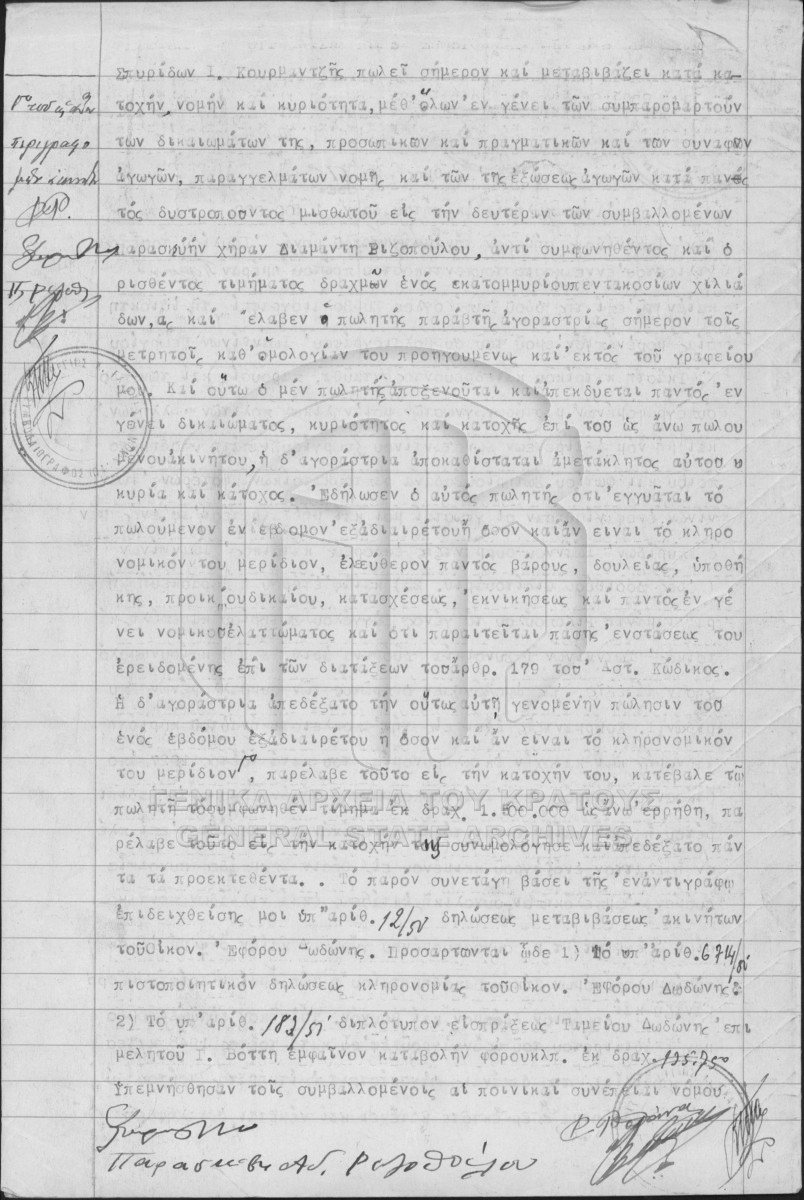 Σπυρίδων Ι. Κουρμαντζῆς πωλεῖ σήμερον καί μεταβιβάζει κατά κα-
τοχήν, νομήν καί κυριότητα, μέθ' ὅλων ἐν γένει τῶν συμπαρομαρτούν
των δικαιωμάτων της, προσωπικῶν καί πραγματικῶν καί τῶν συναφῶν
ἀγωγῶν, παραγγελμάτων νομῆς καί τῶν τῆς ἐξώσεως ἀγωγῶν κατά παν
τός δυστροποῦντος μισθωτοῦ εἰς τήν δευτέραν τῶν συμβαλλομένων
Παρασκευήν χήραν Διαμάντη Ριζοπούλου, ἀντί συμφωνηθέντος καί ὁ
ρισθέντος τιμήματος δραχμῶν ἑνός ἑκατομμυρίουπεντακοσίων χιλιά
δων, ἅς καί ἔλαβεν ὁ πωλητής παράβτῆς ἀγοραστρίας σήμερον τοῖς
μετρητοῖς καθ' ὁμολογίαν του προηγουμένως καί ἐκτός τοῦ γραφείου
μου. Καί οὕτω ὁ μέν πωλητής ἀποξενοῦται καί ἀπεκδύεται παντός ἐν
γένει δικαιώματος, κυριότητος καί κατοχῆς ἐπί τοῦ ὡς ἄνω πωλου
μένουἀκινήτου, ἡ δ' ἀγοράστρια ἀποκαθίσταται ἀμετάκλητος αὐτοῦ
κυρία καί κάτοχος. Ἐδήλωσεν ὁ αὐτός πωλητής ὅτι ἐγγυᾶται τό
πωλούμενον ἐν ἕβδομον ἐξἀδιαιρέτουἤ ὅσον καί ἄν εἶναι τό κληρο
νομικόν του μερίδιον, ἐλεύθερον παντός βάρους, δουλείας, ὑποθή
κης, προικῴουδικαίου, κατασχέσεως, ἐκνικήσεως καί παντός ἐν γέ
νει νομικοῦἐλαττώματος καί ὅτι παραιτεῖται πάσης ἐνστάσεως του
ἐρειδομένης ἐπί τῶν διατάξεων τοῦἄρθρ. 179 τοῦ Αστ. Κώδικος.
Ἡ δ' ἀγοράστρια ἀπεδέξατο τήν οὕτωςαὐτῇ γενομένην πώλησιν τοῦ
ἑνός ἑβδόμου ἐξἀδιαιρέτου ἤ ὅσον καί ἄν εἶναι τό κληρονομικόν
του μερίδιον, παρέλαβε τοῦτο εἰς τήν κατοχήν του, κατέβαλε τῷ
πωλητῇ τόσυμφωνηθέν τίμημα ἐκ δραχ. 1.500.000 ὡς ἄνω ἐρρήθη, πα
ρέλαβε τοῦτο εἰς τήν κατοχήν της συνωμολόγησε καί ἀπεδέξατο πάν
τα τά προεκτεθέντα. . Τό παρόν συνετάγη βάσει τῆς ἐνἀντιγράφῳ
ἐπιδειχθείσης μοι ὑπ' ἀριθ. 12/51 δηλώσεως μεταβιβάσεως ἀκινήτων
τοῦΟἰκον. Ἐφόρου Δωδώνης. Προσαρτῶνται ὧδε 1) Τό ὑπ' ἀριθ. 6714/51
πιστοποιητικόν δηλώσεως κληρονομίας τοῦΟἰκον. Ἐφόρου Δωδώνης
2) Τό ὑπ' ἀριθ. 182/51 διπλότυπον εἰσπράξεως Ταμείου Δωδώνης ἐπι
μελητοῦ Γ. Βόττη ἐμφαῖνον καταβολήν φόρουκλπ. ἐκ δραχ. 195.750
Ὑπεμνήσθησαν τοῖς συμβαλλομένοις αἱ ποινικαί συνέπειαι νόμου
Παρασκευη Αδ. Ριζοπούλου
ΓΕΝΙΚΑ ΑΡΧΕΙΑ ΤΟΥ ΚΡΑΤΟΥΣ
GENERAL STATE ARCHIVES